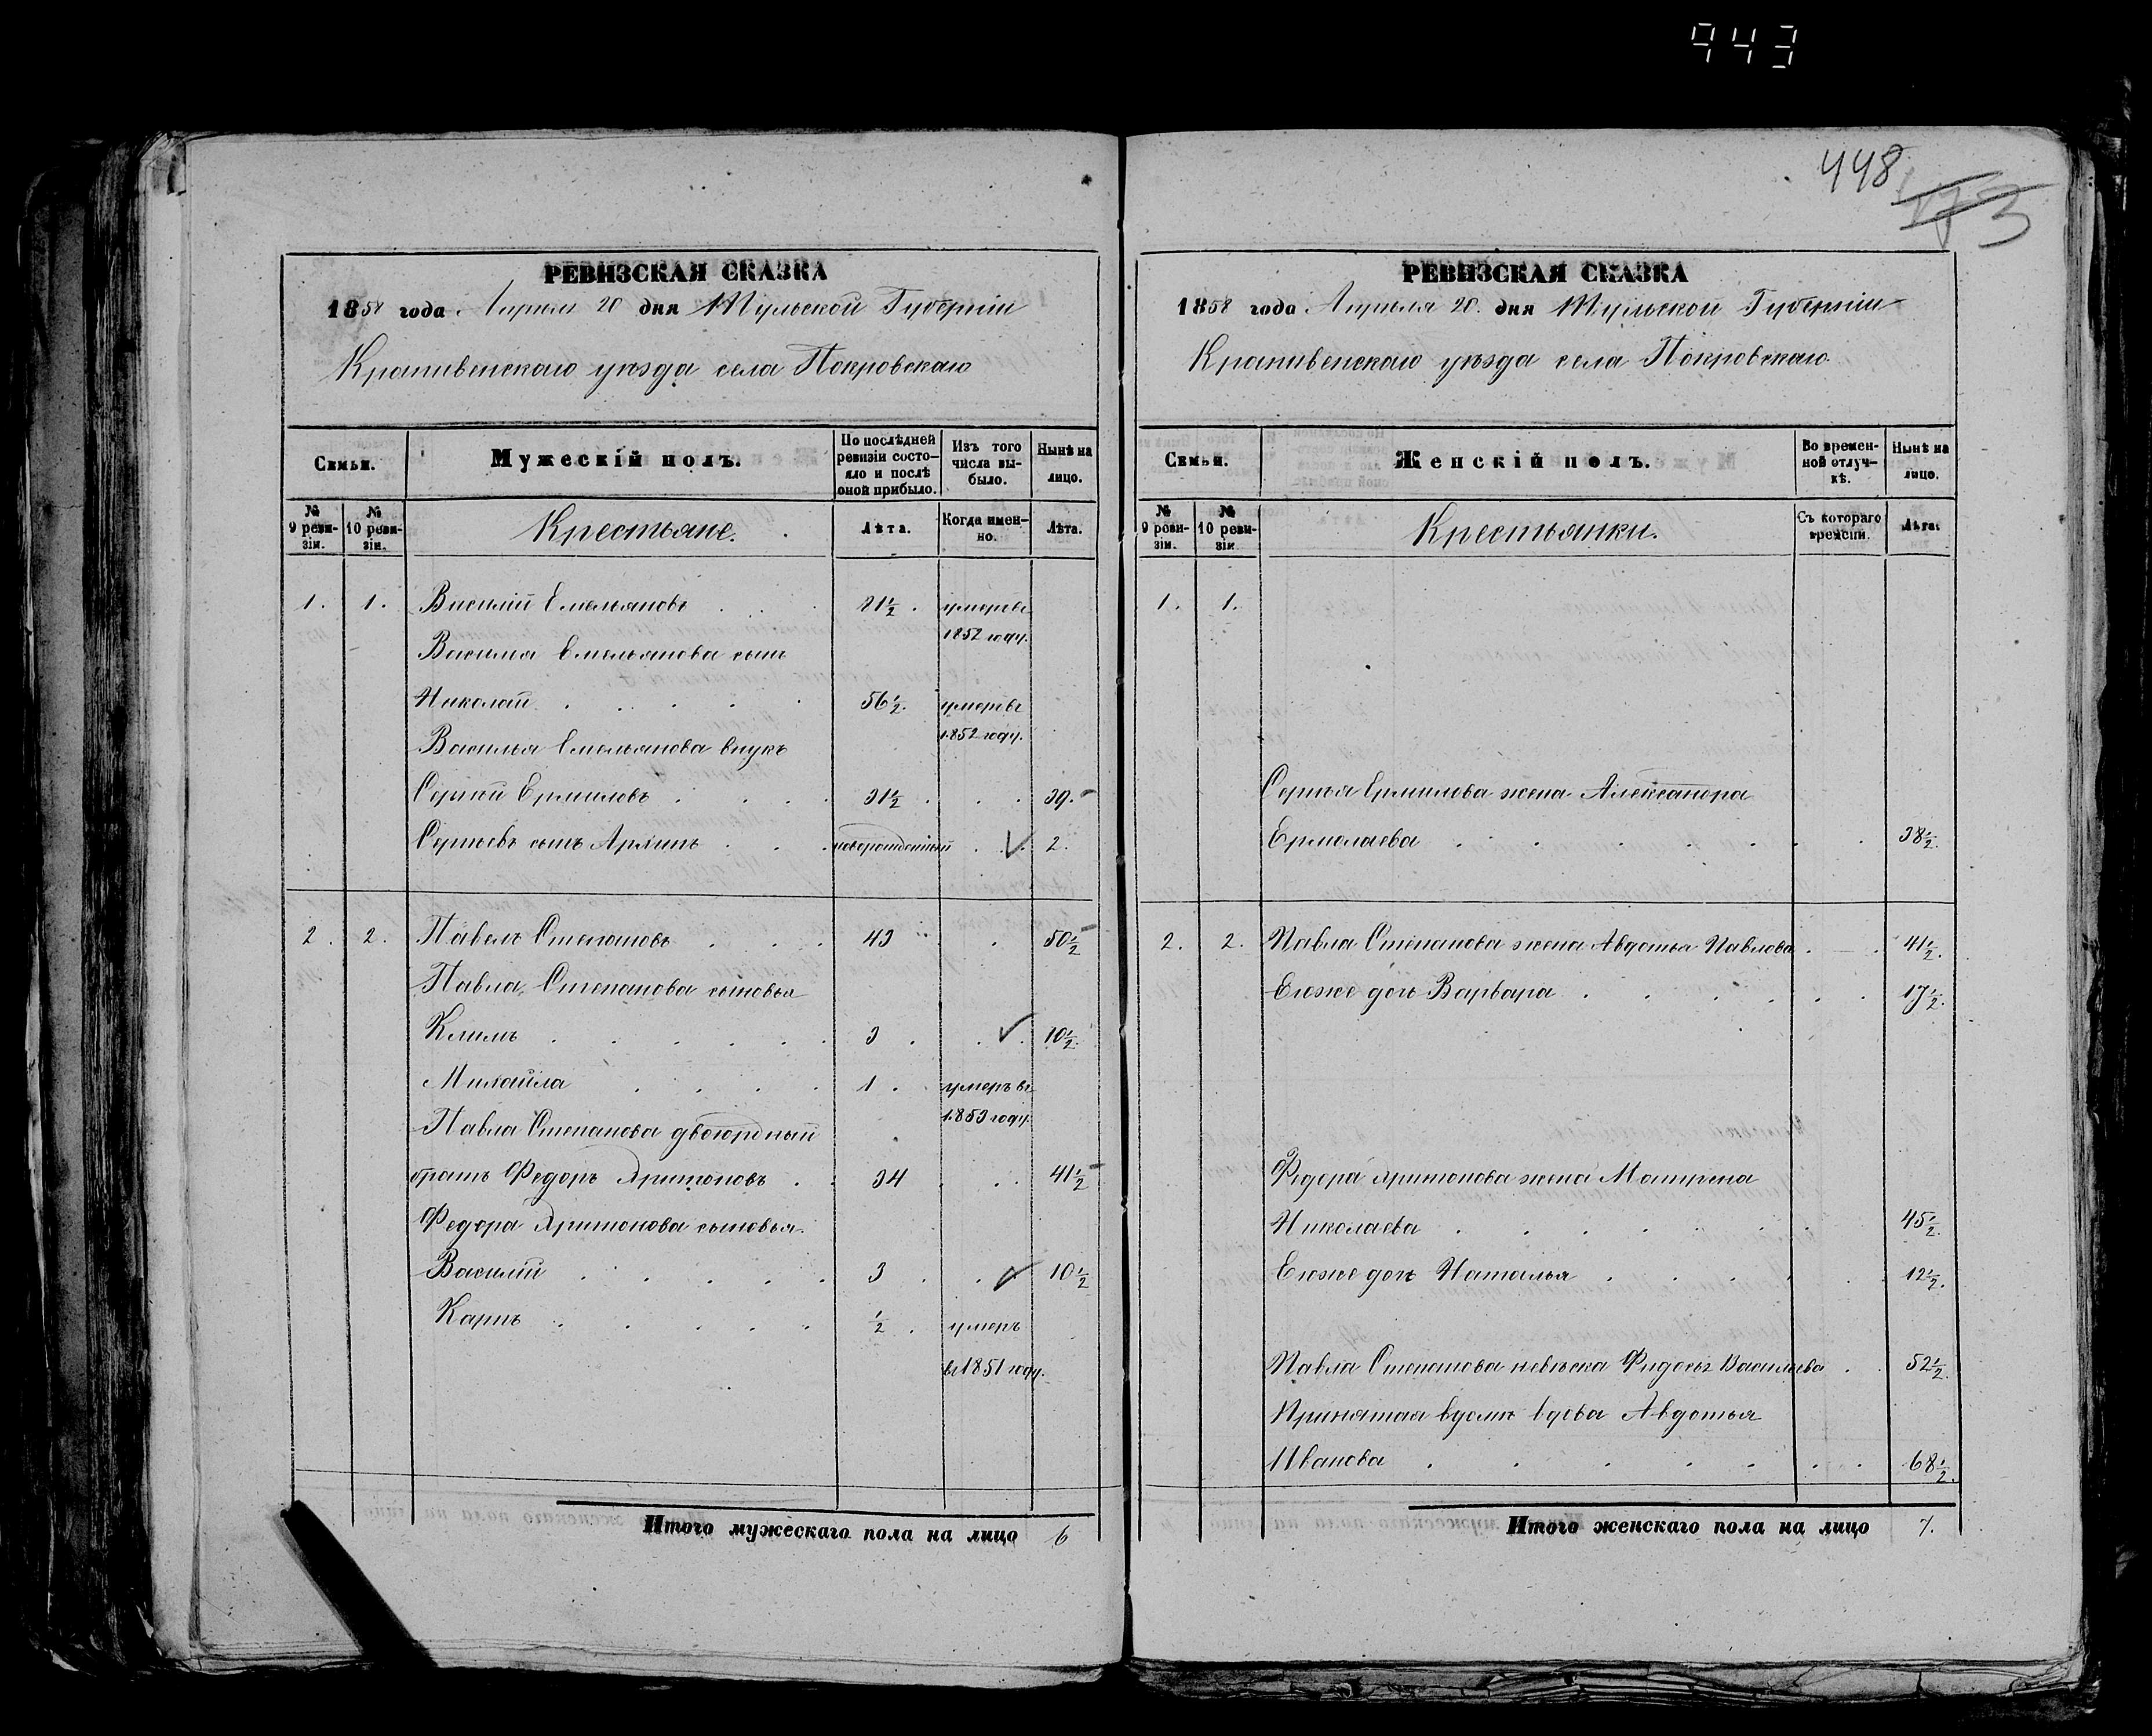 943
448
173
РЕВИЗСКАЯ СКАЗКА
1858 года Апрѣля 20 дня Тульской Губерніи
Крапивенскаго уѣзда села Покровскаго
Семьи.
Мужескій полъ.
По послѣдней ревизіи состояло и послѣ оной прибыло.
Изъ того числа выбыло.
Нынѣ на лицо.
№ 9 ревизіи.
№ 10 ревизіи.
Крестьяне.
Лѣта.
Когда именно.
Лѣта.
1. 1. Василій Емельяновъ 81½ умеръ въ
1852 году.
Василія Емельянова сынъ
Николай 56½ умеръ въ
1852 году.
Василья Емельянова внукъ
Сергѣй Ермиловъ 31½ 39.
Сергѣевъ сынъ новорожденный 2.
2. 2. Павелъ Степановъ 43 50½
Павла Степанова сыновья
Климъ 3 10½
Михайла 1 умеръ въ
1853 году.
Павла Степанова двоюродный
братъ Федоръ Аритоновъ 34 41½
Федора Аритонова сыновья
Василій 3 10½
Карпъ ½ умеръ
въ 1851 году.
Итого мужескаго пола на лицо 6
РЕВИЗСКАЯ СКАЗКА
1858 года Апрѣля 20. дня Тульской Губерніи
Крапивенскаго уѣзда села Покровскаго
Семьи.
Женскій полъ.
Во временной отлучкѣ.
Нынѣ на лицо.
№ 9 ревизіи.
№ 10 ревизіи.
Крестьянки.
Съ котораго времени.
Лѣта.
1. 1.
Сергѣя Ермилова жена Александра
Ермолаева 38½
2. 2. Павла Степанова жена Авдотья Павлова 41½
Ево же дочь Варвара 17½
Федора Аритонова жена Матрена
Николаева 45½
Ево же дочь Наталья 12½
Павла Степанова невѣстка Васильева 52½
Принятая вдомъ вдова Авдотья
Иванова 68½
Итого женскаго пола на лицо 7.